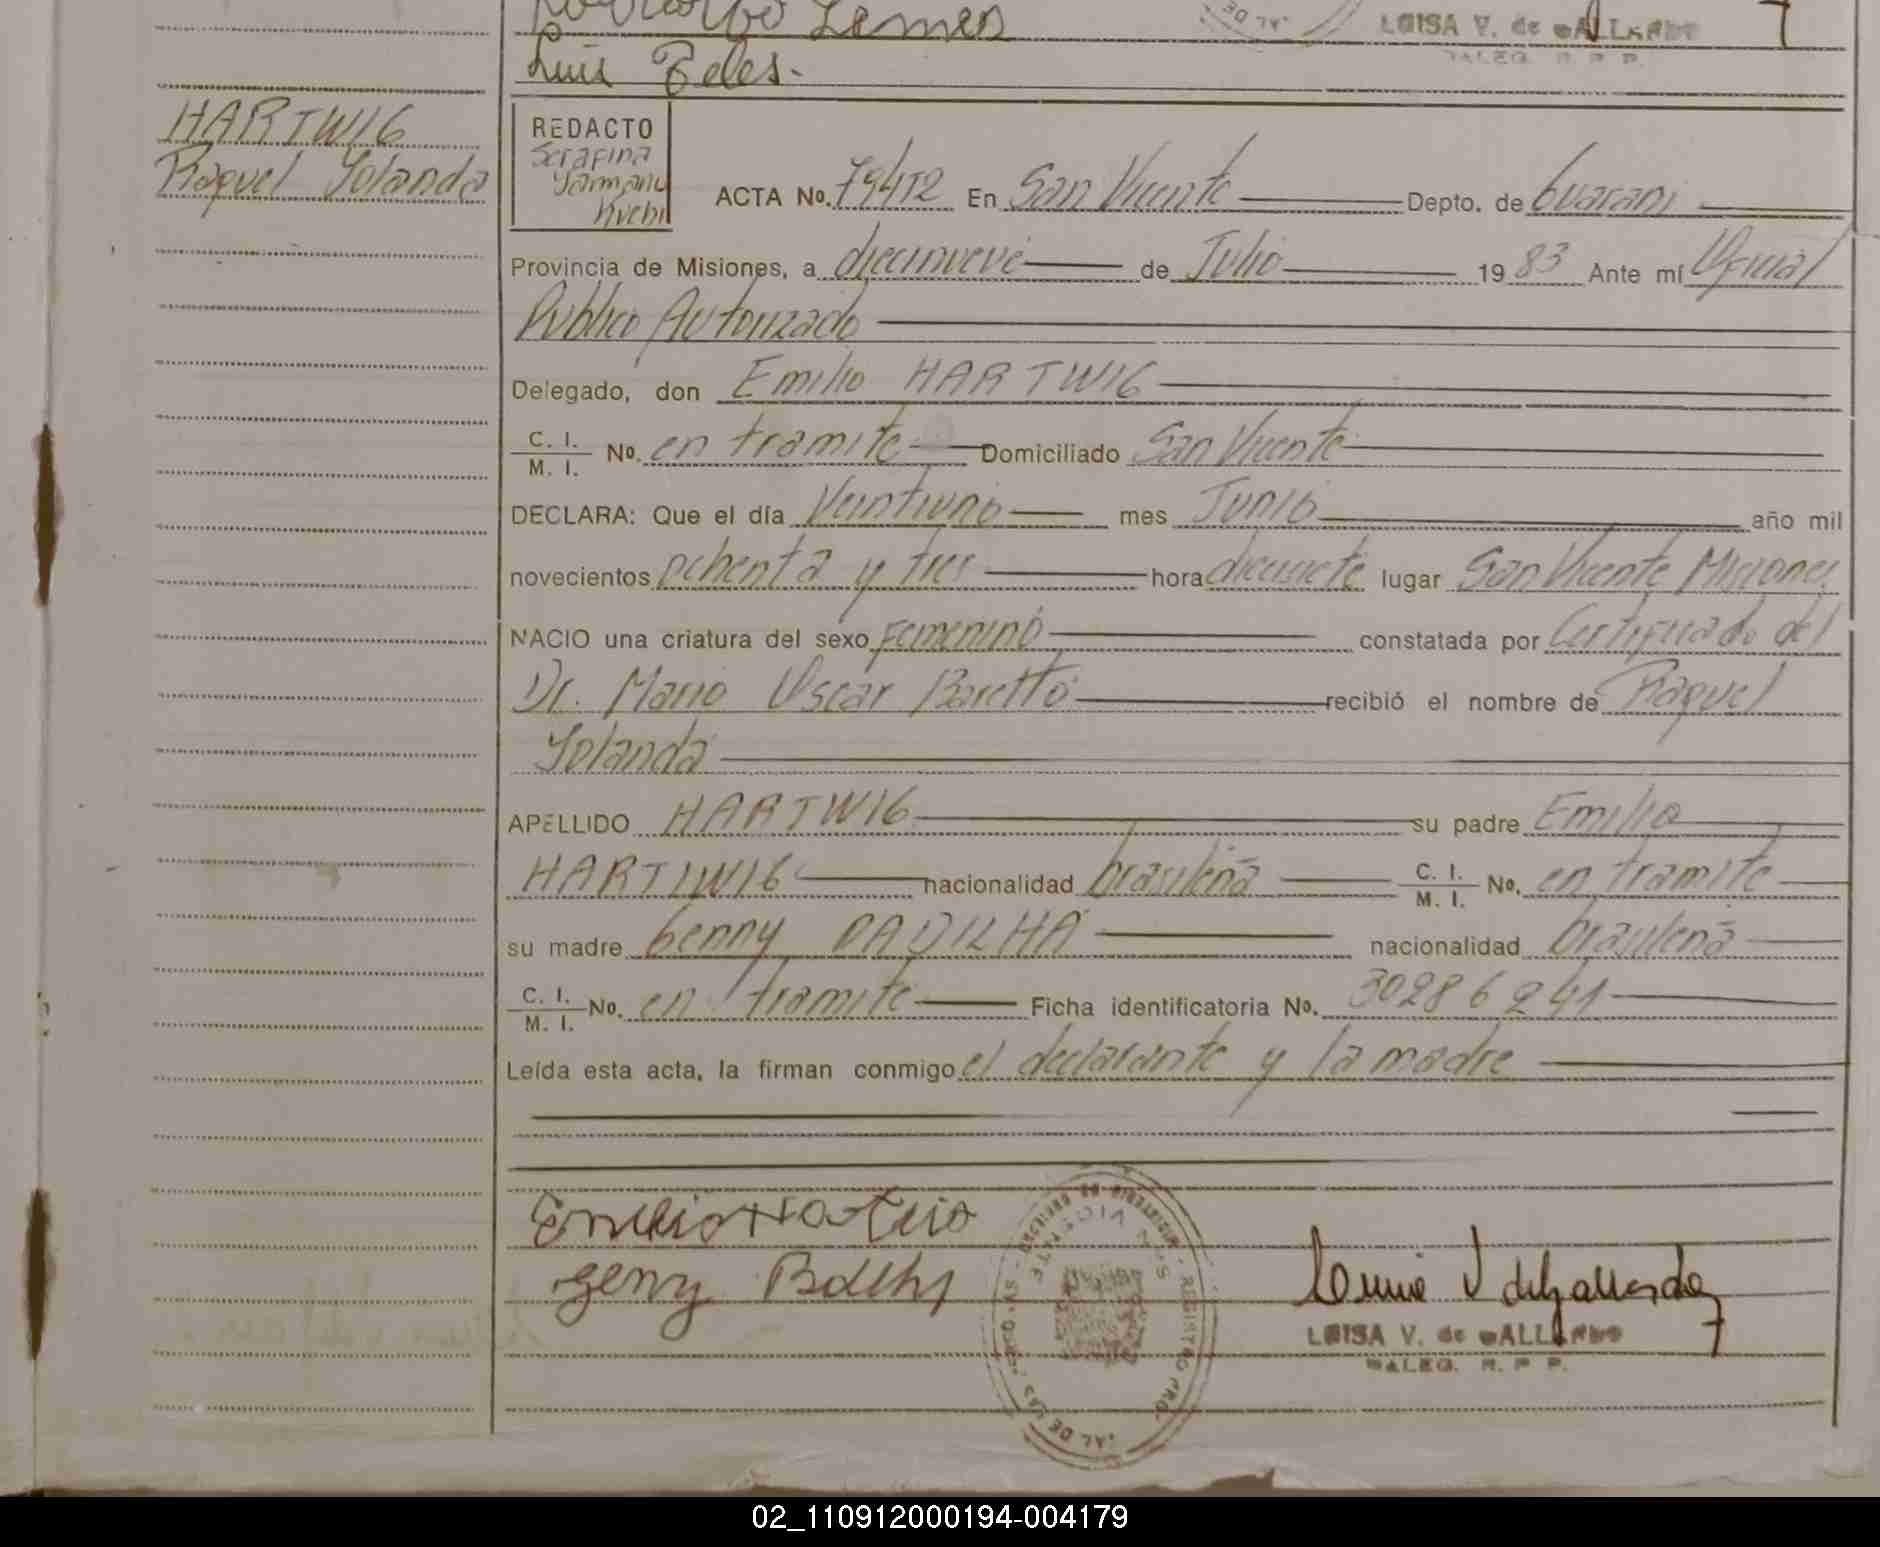 Luis Teles.
LUISA V. de GALLARDO
DALEG. R. P. P.
HARTWIG
Raquel Yolanda
REDACTO
Serafina
ACTA No. En San Vicente Depto. de Guarani
Provincia de Misiones, a diecinueve de Julio 1983 Ante mí Oficial
Publico Autorizado
Delegado, don Emilio HARTWIG
C. I. / M. I. No. en tramite Domiciliado San Vicente
DECLARA: Que el día Veintiuno mes Junio año mil
novecientos ochenta y tres hora diecisiete lugar San Vicente Misiones
NACIO una criatura del sexo Femenino constatada por Certificado del
Dr. Mario Oscar Baretto recibió el nombre de Raquel
Yolanda
APELLIDO HARTWIG su padre Emilio
HARTWIG nacionalidad brasileña C. I. / M. I. No. en tramite
su madre Genny PADILHA nacionalidad brasileña
C. I. / M. I. No. en tramite Ficha identificatoria No. 30286241
Leída esta acta, la firman conmigo el declarante y la madre
SAN VICENTE
REGISTRO PRO.
LUISA V. de GALLARDO
DALEG. R. P. P.
02_110912000194-004179